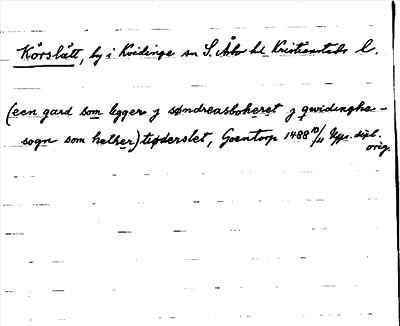 Kårslätt, by i Kvidinge sn S. Åsbo hd Kristianstads l.
(een gard som legger j søndreasboheret j qwidinghe-
sogn som hether) tiøderslet, Goentorp 1488 10/11 Upps. dipl.
orig.